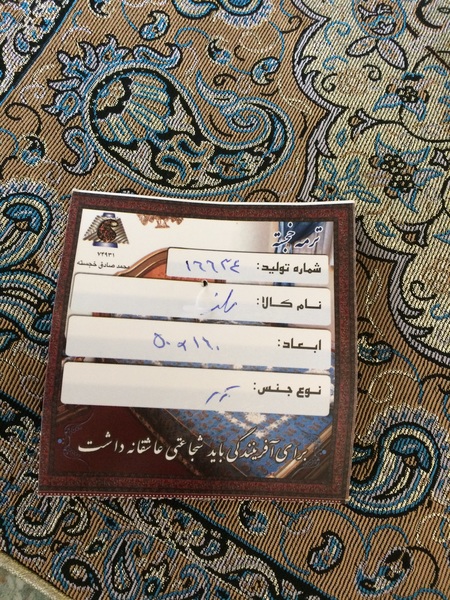 ترمه خجسته
۷۴۹۳۱
محمد صادق خجسته
شماره تولید: ۱۶۶۳۴
نام کالا:
ابعاد: ۵۰ و ۱۶۰
نوع جنس:
برای آفرینندگی باید شجاعتی عاشقانه داشت